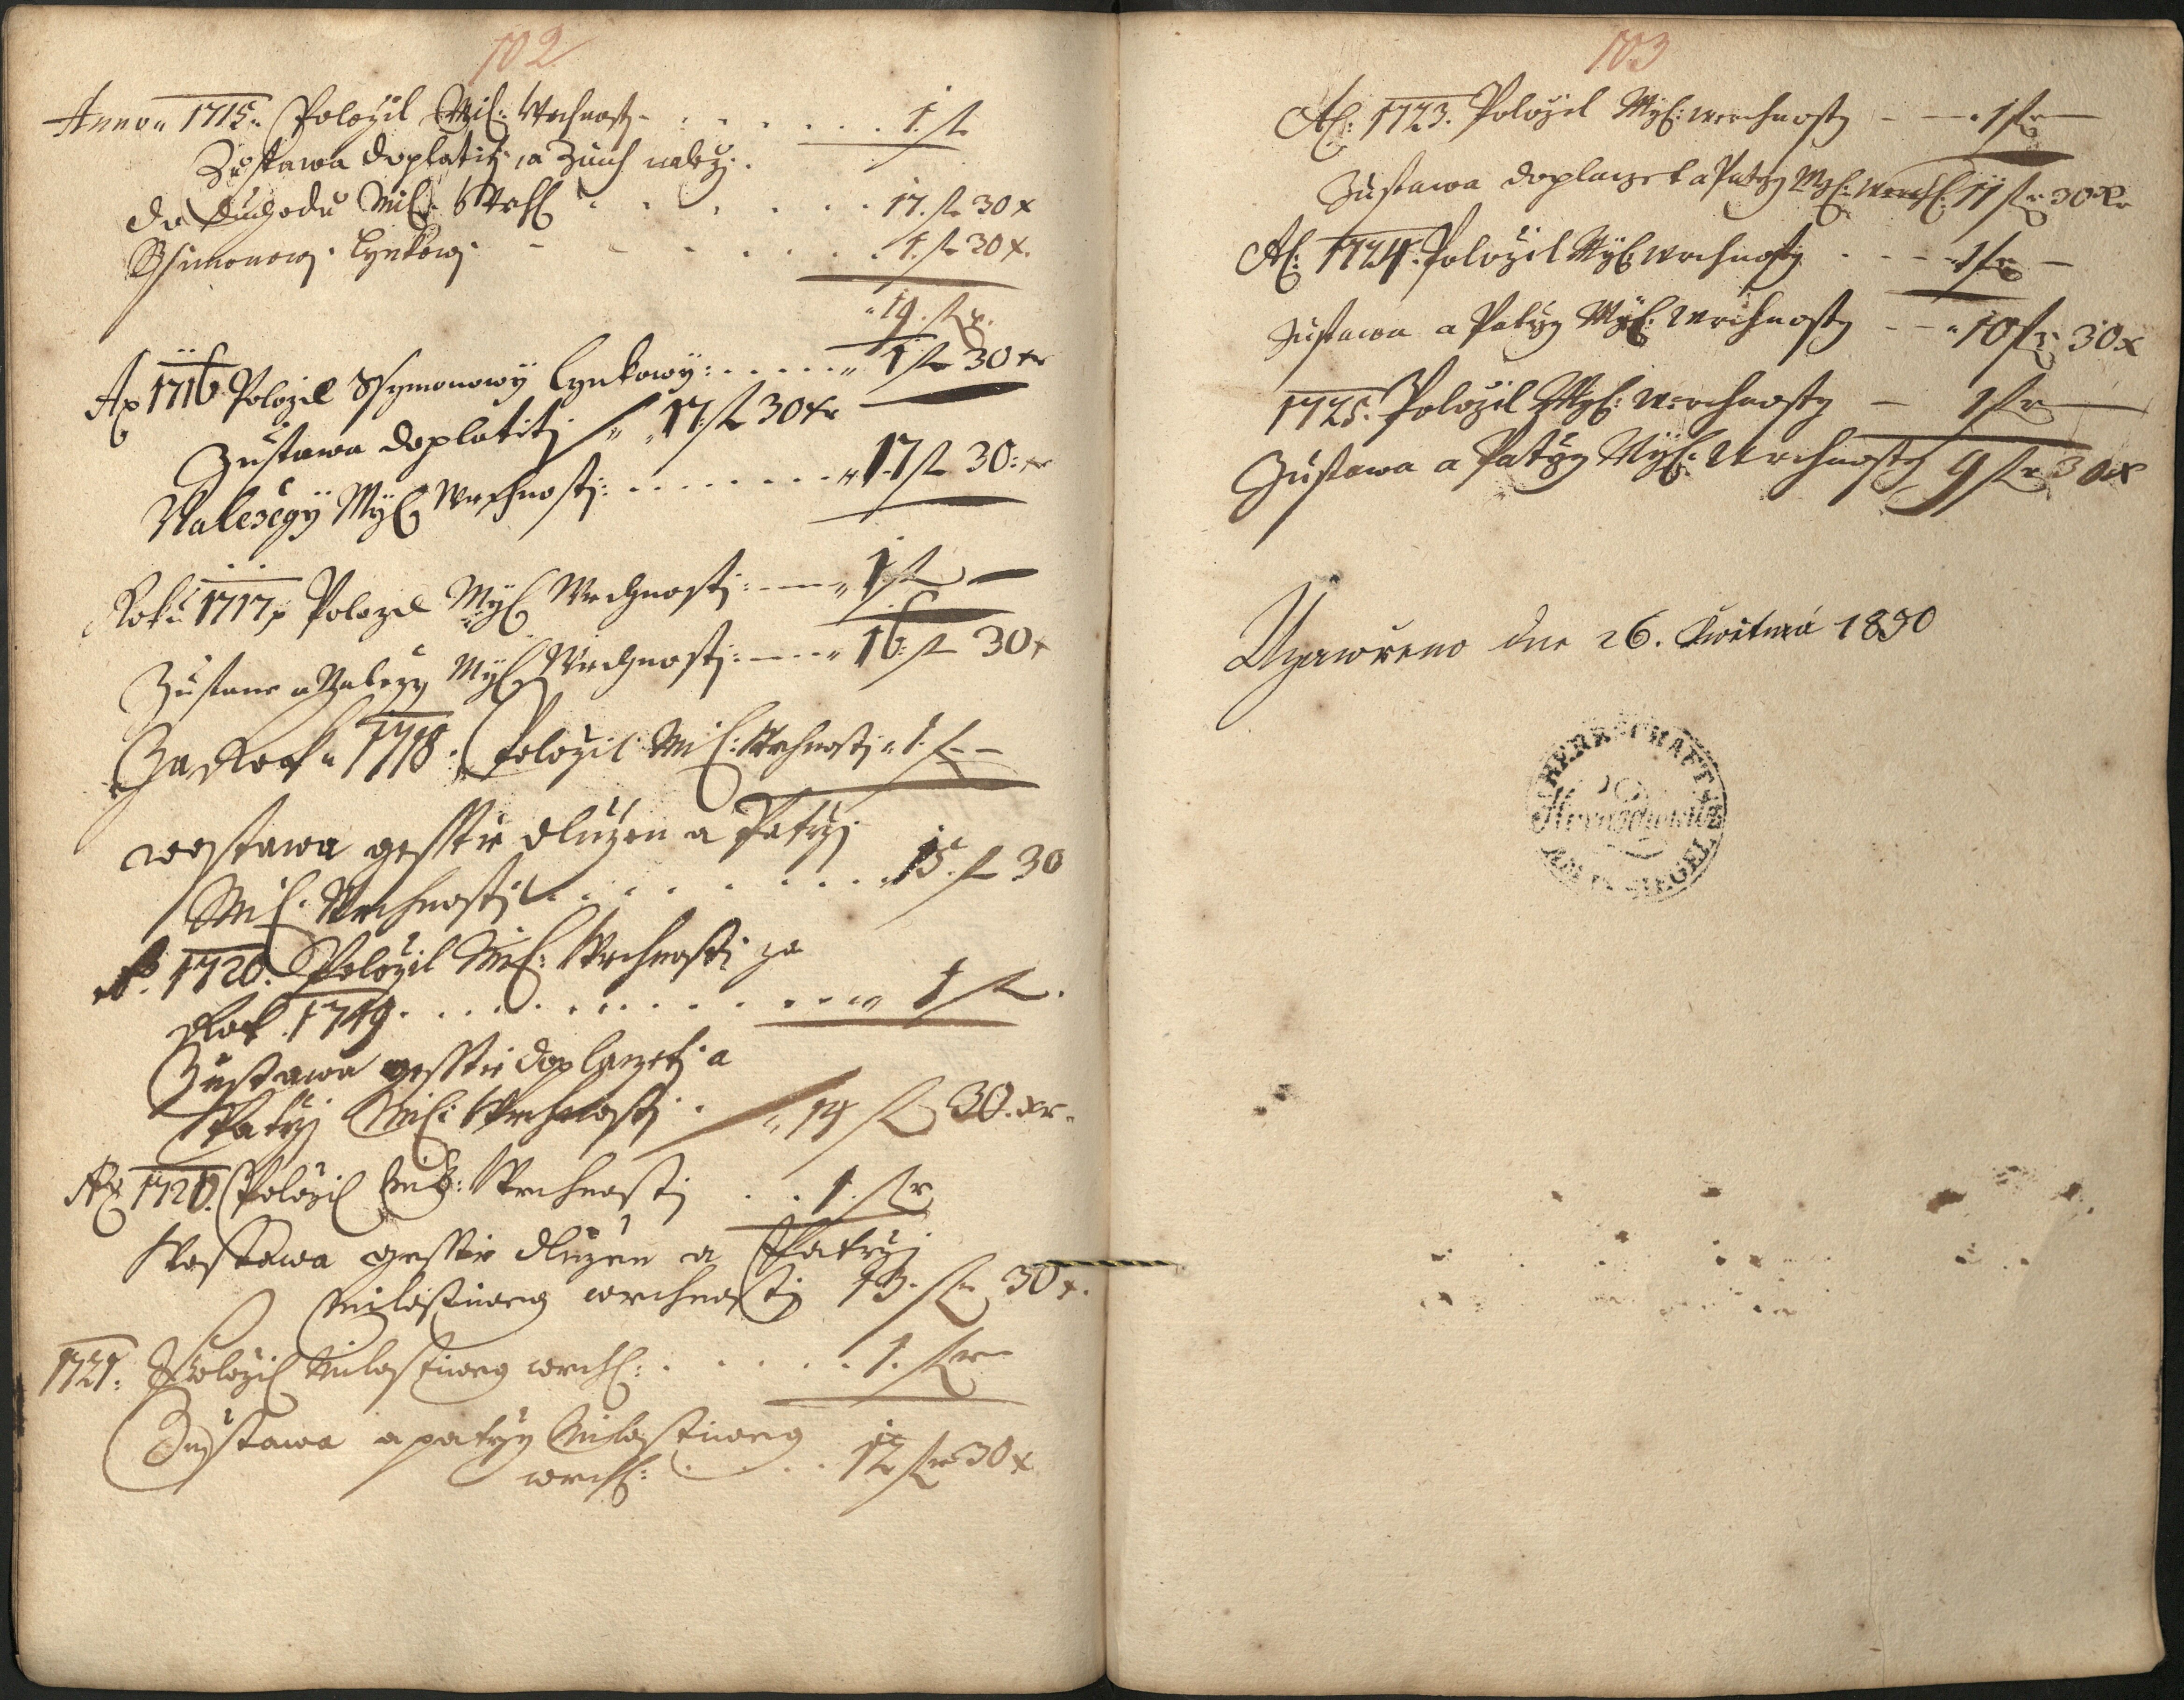 102
Anno 1715 Položil Mil: Wrchnosti 1. fl
Zustawa doplatiti, a Znich naleži.
do Duchodu Mil: Wrch 17. fl 30 x
Ssimonowi Lynkowi 1. fl 30 x.
19. fl
Ao 1716 Polozil Ssymonowÿ Lynkowÿ: 1 fl 30 xr
Zustawa doplatiti 17. fl 30 xr
Nalezegÿ Mÿl Wrchnosti: 17 fl 30: xr
Roku 1717 Polozil Mÿl Wrchnosti: 1 fl —
Zustane a Nalezy Mÿl Wrchnosti: 16: fl 30 x
Za Rok 1718. Položil Mil: Wrchnosti 1. f —
wostawa gesstie dlužen a Patrzi
Mil. Wrchnosti 15. fl 30
A. 1720. Položil Mil: Wrchnosti za
Rok 1719. 1 fl.
Zustawa gesstie doplatzeti a
Patrzi Mil: Wrchnosti 14 fl 30. xr.
Ao 1720. Položil Mil: Wrchnosti 1. fl
Wostawa gesstie dlužen a Patrzi
Milostiweg wrchnosti 13. fl 30 x.
1721. Položil Milostiweg wrch: 1. fl
Zustawa a patrzy Milostiweg
wrch: 12 fl 30 x
103
A: 1723. Položil Mÿl: werchnosty — 1 fl —
Zustawa doplaczet a Patrzy Mÿl: werch: 11 fl 30 xr
A: 1724. Položil Mÿl: wrchnosty 1 fl —
Zustawa a Patrzÿ Mÿl: Wrchnosty 10 fl 30 x
1725. Položil Mÿl: Werchnosty — 1 fl —
Zustawa a Patrzy Mÿl: Wrchnosty 9 fl 30 x
Uzawřeno dne 26. Kwětná 1830
HERRSCHAFT
SIEGEL